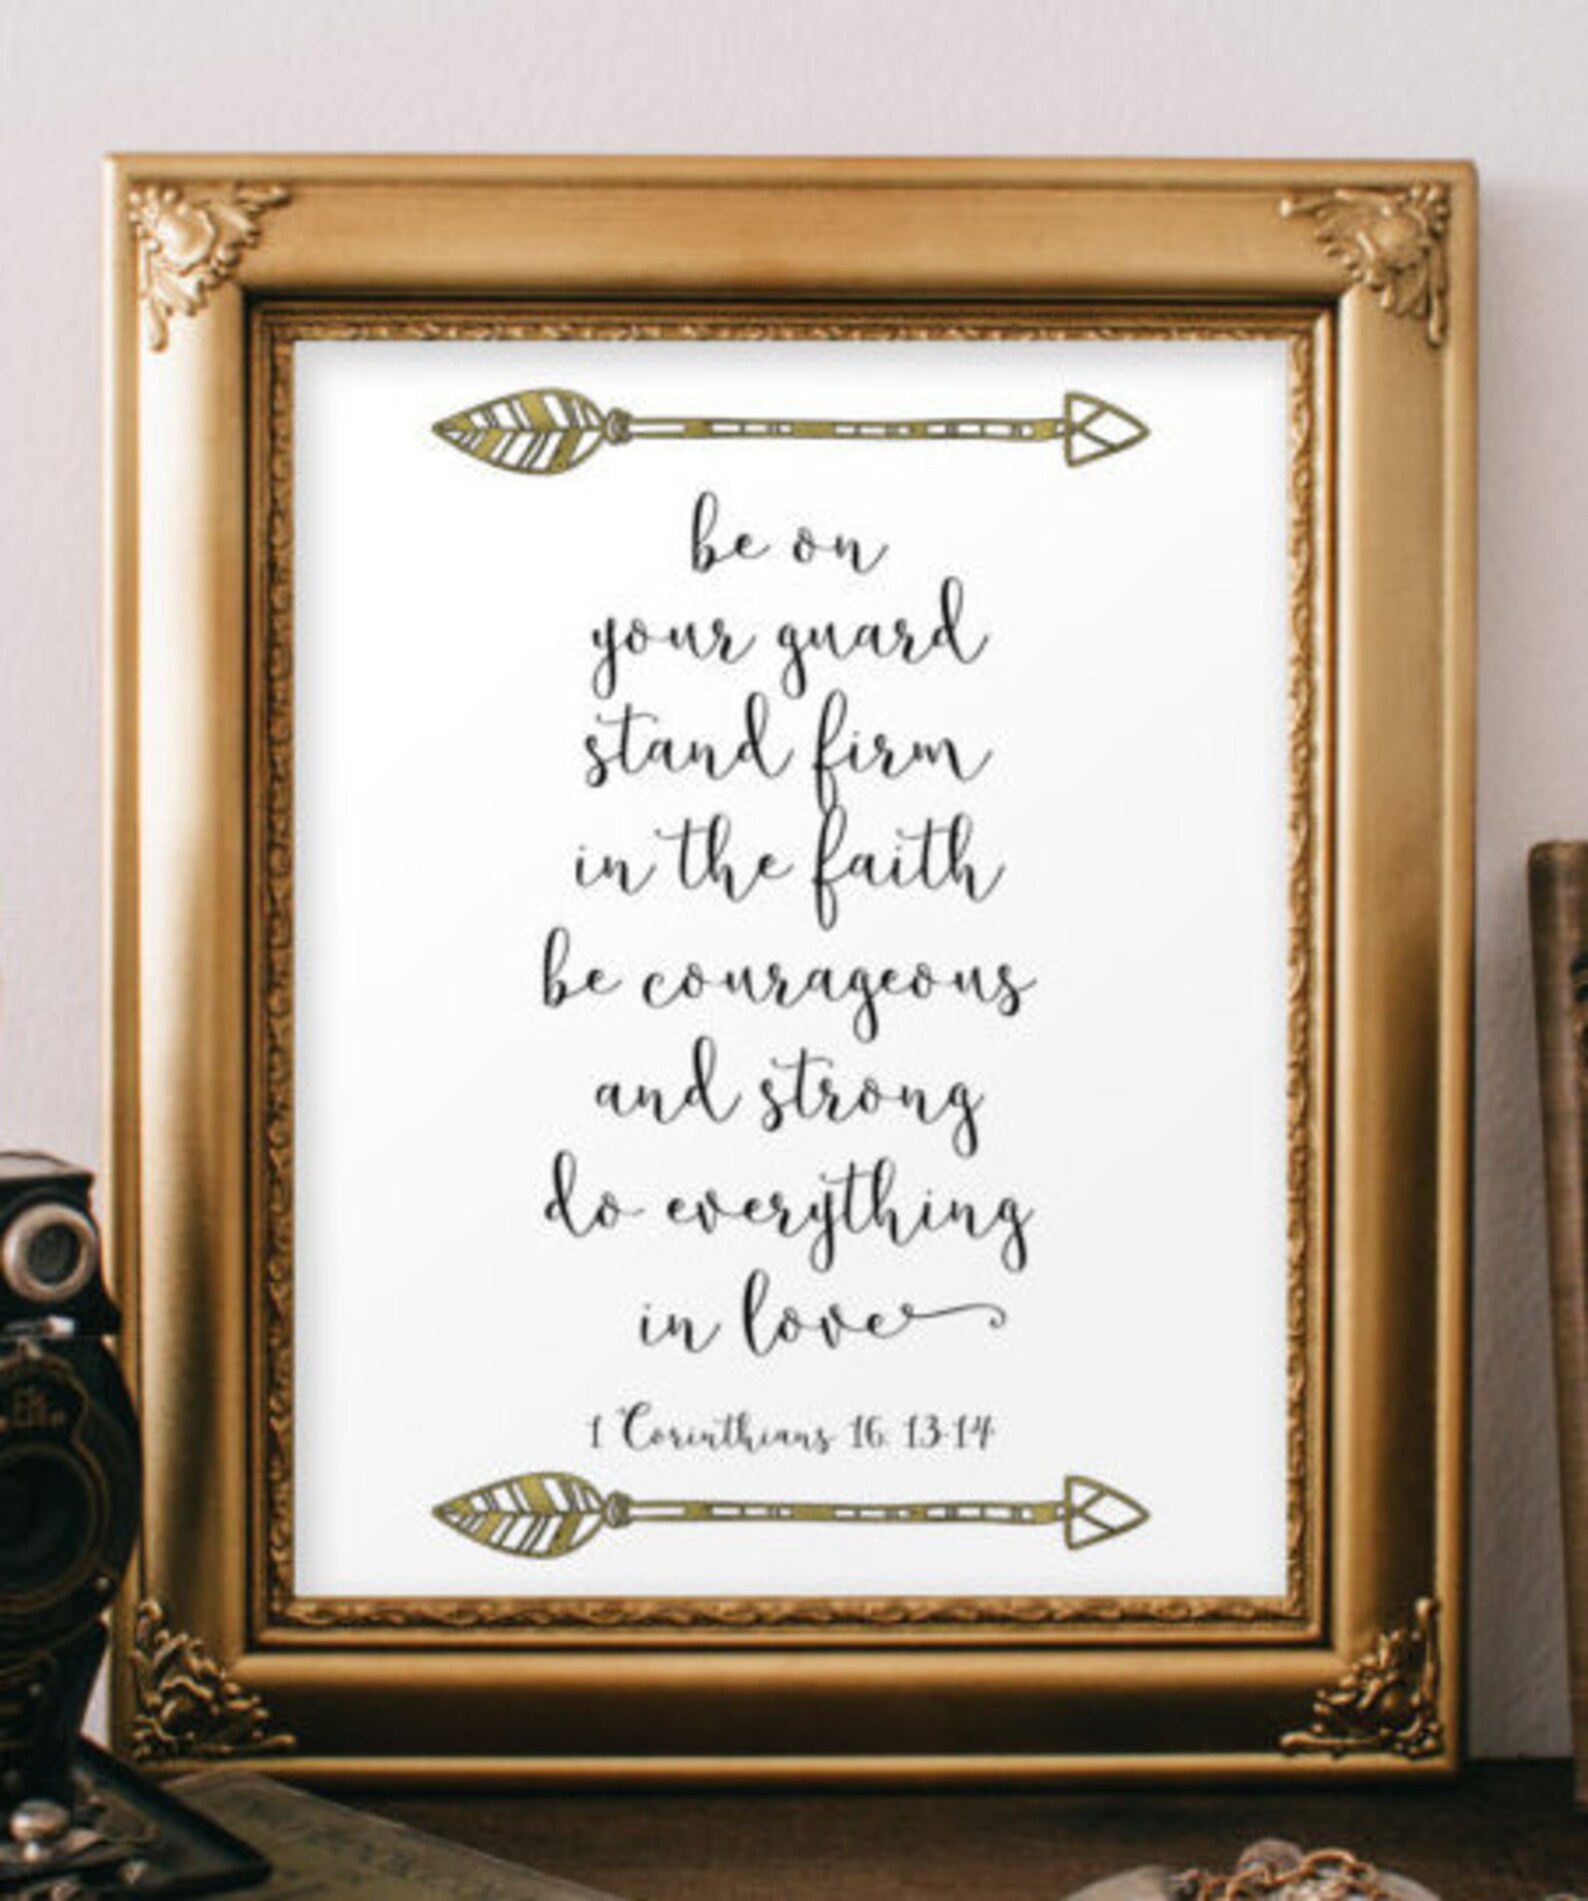 be on
your guard
stand firm
in the faith
be courageous
and strong
do everything
in love
1 Corinthians 16: 13-14